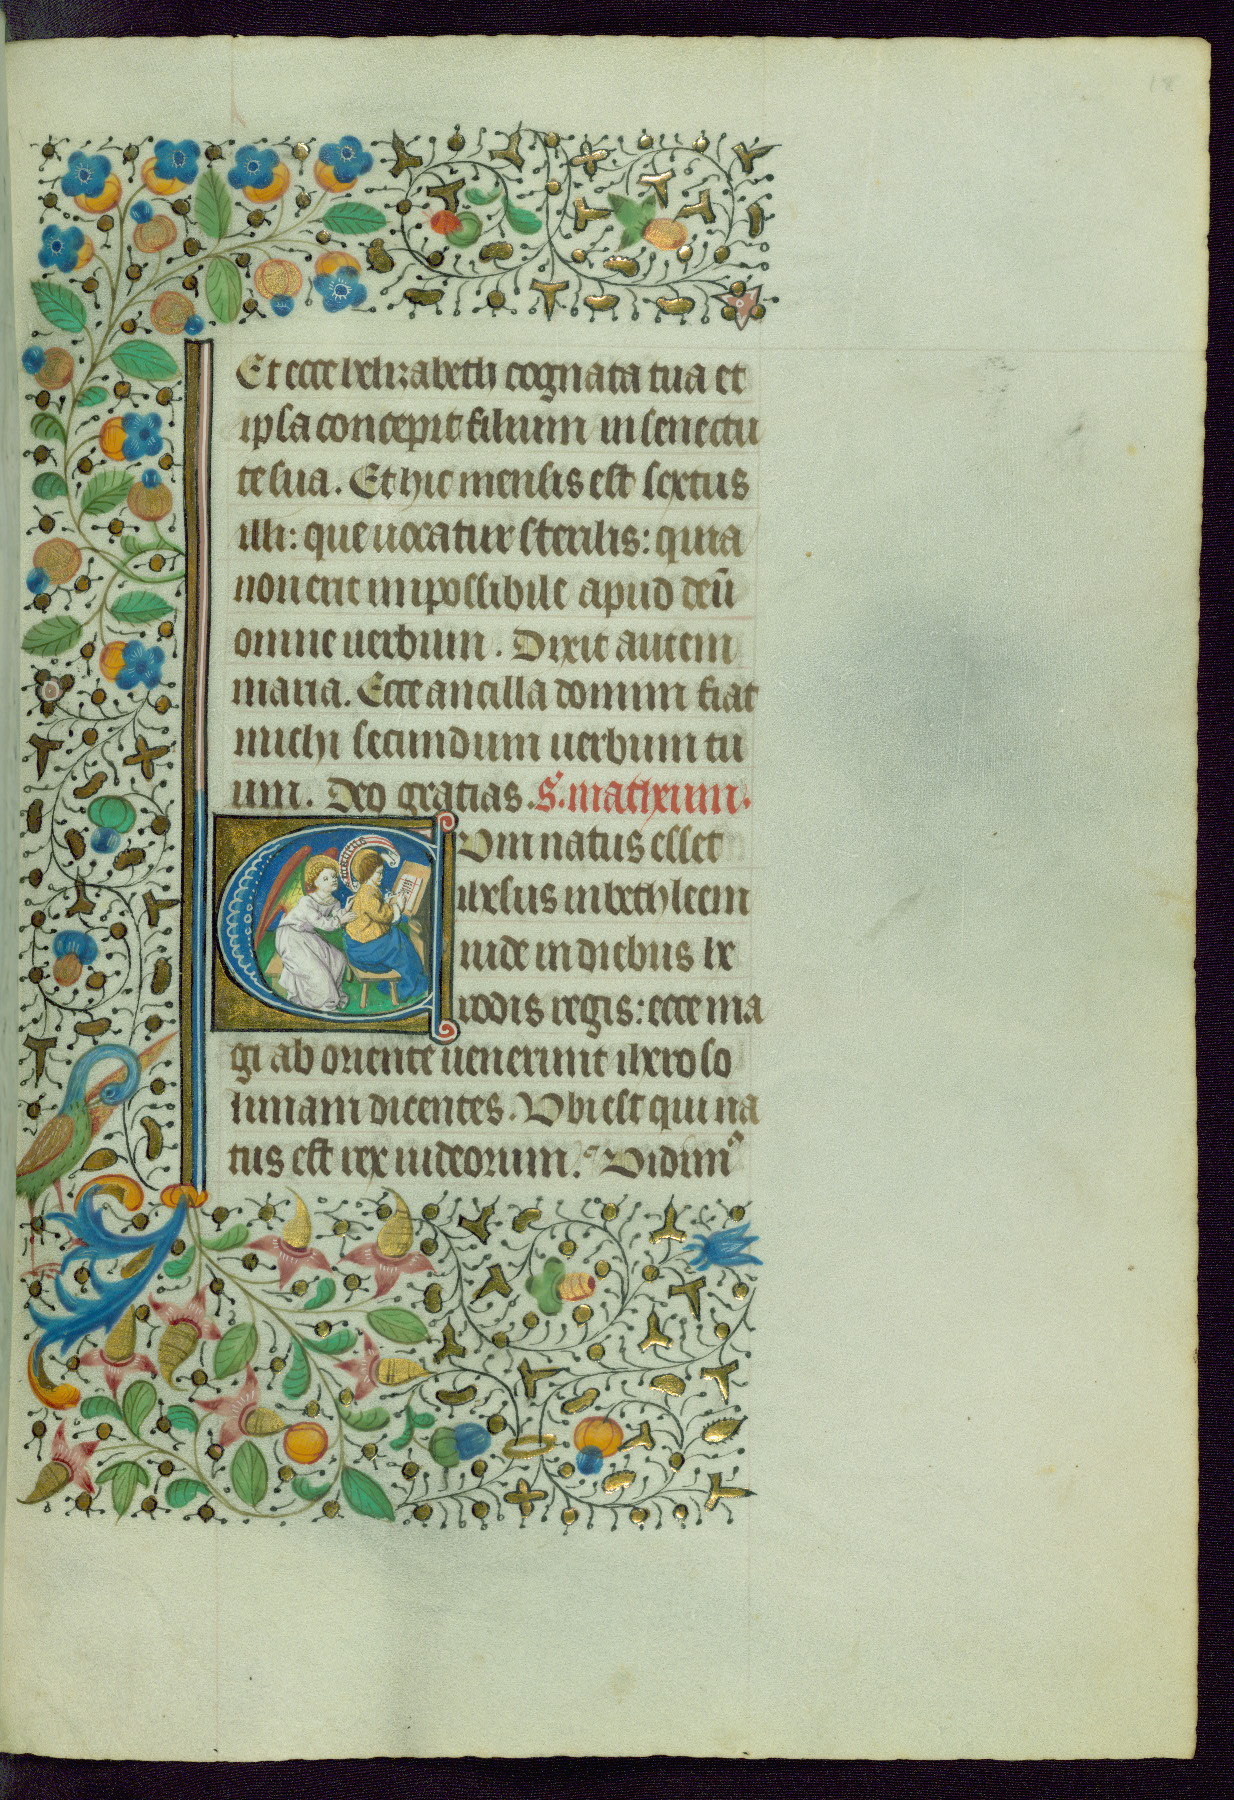 18
Et ecce helizabeth cognata tua et
ipsa concepit filium in senectu
te sua. Et hic mensis est sextus
illi: que uocatur sterilis: quia
non erit impossibile apud deū
omne uerbum. Dixit autem
maria. Ecce ancilla domini fiat
michi secundum uerbum tu
um. Deo gratias. S. matheum.
Cum natus esset
ihesus in bethleem
iude in diebus he
rodis regis: ecce ma
gi ab oriente uenerunt iheroso
limam dicentes. Vbi est qui na
tus est rex iudeorum. Vidimꝰ